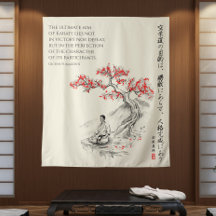 THE ULTIMATE AIM
OF KARATE LIES NOT
IN VICTORY NOR DEFEAT,
BUT IN THE PERFECTION
OF THE CHARACTER
OF ITS PARTICIPANTS.
空手道の目的は、勝敗にあらず、人格完成にあり